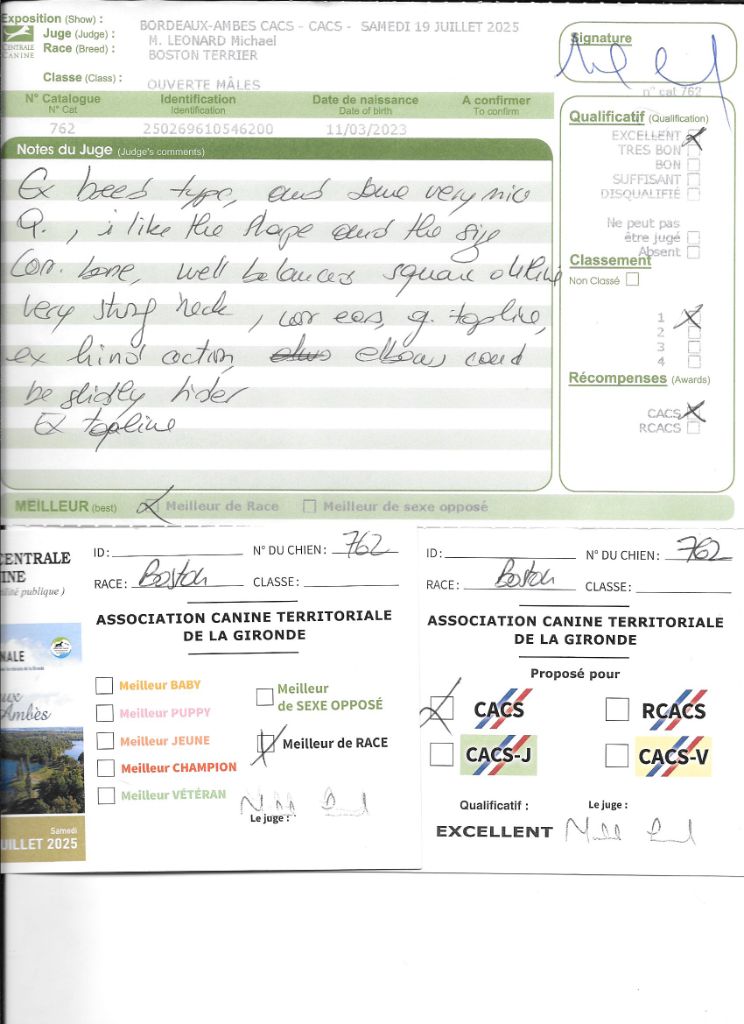 Exposition (Show) : BORDEAUX-AMBES CACS - CACS - SAMEDI 19 JUILLET 2025
Juge (Judge) : M. LEONARD Michael
Race (Breed) : BOSTON TERRIER
CENTRALE
CANINE
Classe (Class) : OUVERTE MÂLES
Signature
n° cat 762
N° Catalogue Identification Date de naissance A confirmer
N° Cat Identification Date of birth To confirm
762 250269610546200 11/03/2023
Notes du Juge (Judge's comments)
Ex breed type, and some very nice
Q., i like the shape and the size
Corr. bone, well balanced square outline
very strong neck, corr ears, g. topline,
ex hind action, elbows could
be slightly tider
Ex topline
Qualificatif (Qualification)
EXCELLENT
TRES BON
BON
SUFFISANT
DISQUALIFIÉ
Ne peut pas
être jugé
Absent
Classement
Non Classé
1
2
3
4
Récompenses (Awards)
CACS
RCACS
MEILLEUR (best) Meilleur de Race Meilleur de sexe opposé
CENTRALE
INE
ilité publique )
NALE
ux
Ambès
Samedi
UILLET 2025
ID : N° DU CHIEN : 762
RACE : Boston CLASSE :
ASSOCIATION CANINE TERRITORIALE
DE LA GIRONDE
Meilleur BABY
Meilleur PUPPY
Meilleur JEUNE
Meilleur CHAMPION
Meilleur VÉTÉRAN
Meilleur
de SEXE OPPOSÉ
Meilleur de RACE
Le juge :
ID : N° DU CHIEN : 762
RACE : Boston CLASSE :
ASSOCIATION CANINE TERRITORIALE
DE LA GIRONDE
Proposé pour
CACS RCACS
CACS-J CACS-V
Qualificatif : Le juge :
EXCELLENT